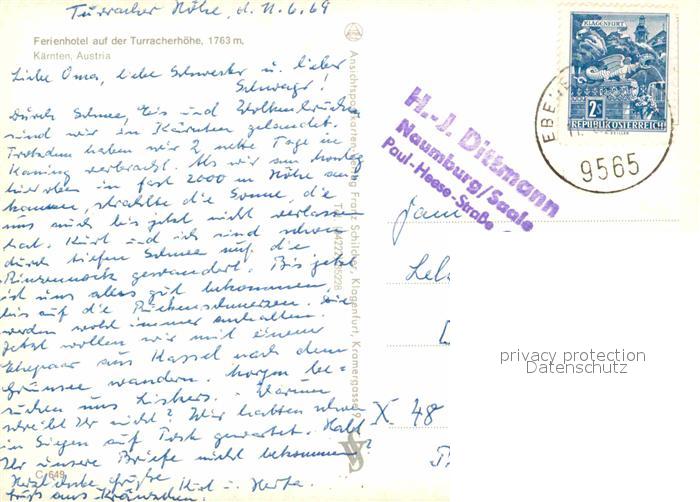 Turracher Höhe, d. 11.6.69
Ferienhotel auf der Turracherhöhe, 1763 m,
Kärnten, Austria
Liebe Oma, liebe Schwester u. lieber
Schwager!
Durch Schnee, Eis und Wolkenbrüche
sind wir in Kärnten gelandet.
Trotzdem haben wir 2 nette Tage in
Kaning verbracht. Als wir am Montag
hier oben in fast 2000 m Höhe an-
kamen, strahlte die Sonne, die
uns auch bis jetzt nicht verlassen
hat. Kurt und ich sind schon
durch tiefen Schnee auf die
Rinsennock gewandert. Bis jetzt
ist uns alles gut bekommen,
bis auf die Rückenschmerzen. Die
werden wohl immer anhalten.
Jetzt wollen wir mit einem
Ehepaar aus Kassel nach dem
Grünsee wandern. Morgen be-
suchen uns Lishers. Warum
schreibt Ihr nicht? Wir hatten schon
in Siegen auf Post gewartet. Habt
Ihr unsere Briefe nicht bekommen?
Herzliche Grüße Kurt u. Herta.
Gruß aus
C 649
Ansichtspostkarten-Verlag Franz Schilcher, Klagenfurt, Kramergasse 9
KLAGENFURT
2S
REPUBLIK ÖSTERREICH
EBENE
9565
H.-J. Dittmann
Naumburg/Saale
Paul-Heese-Straße
Fam
X 48
privacy protection
Datenschutz